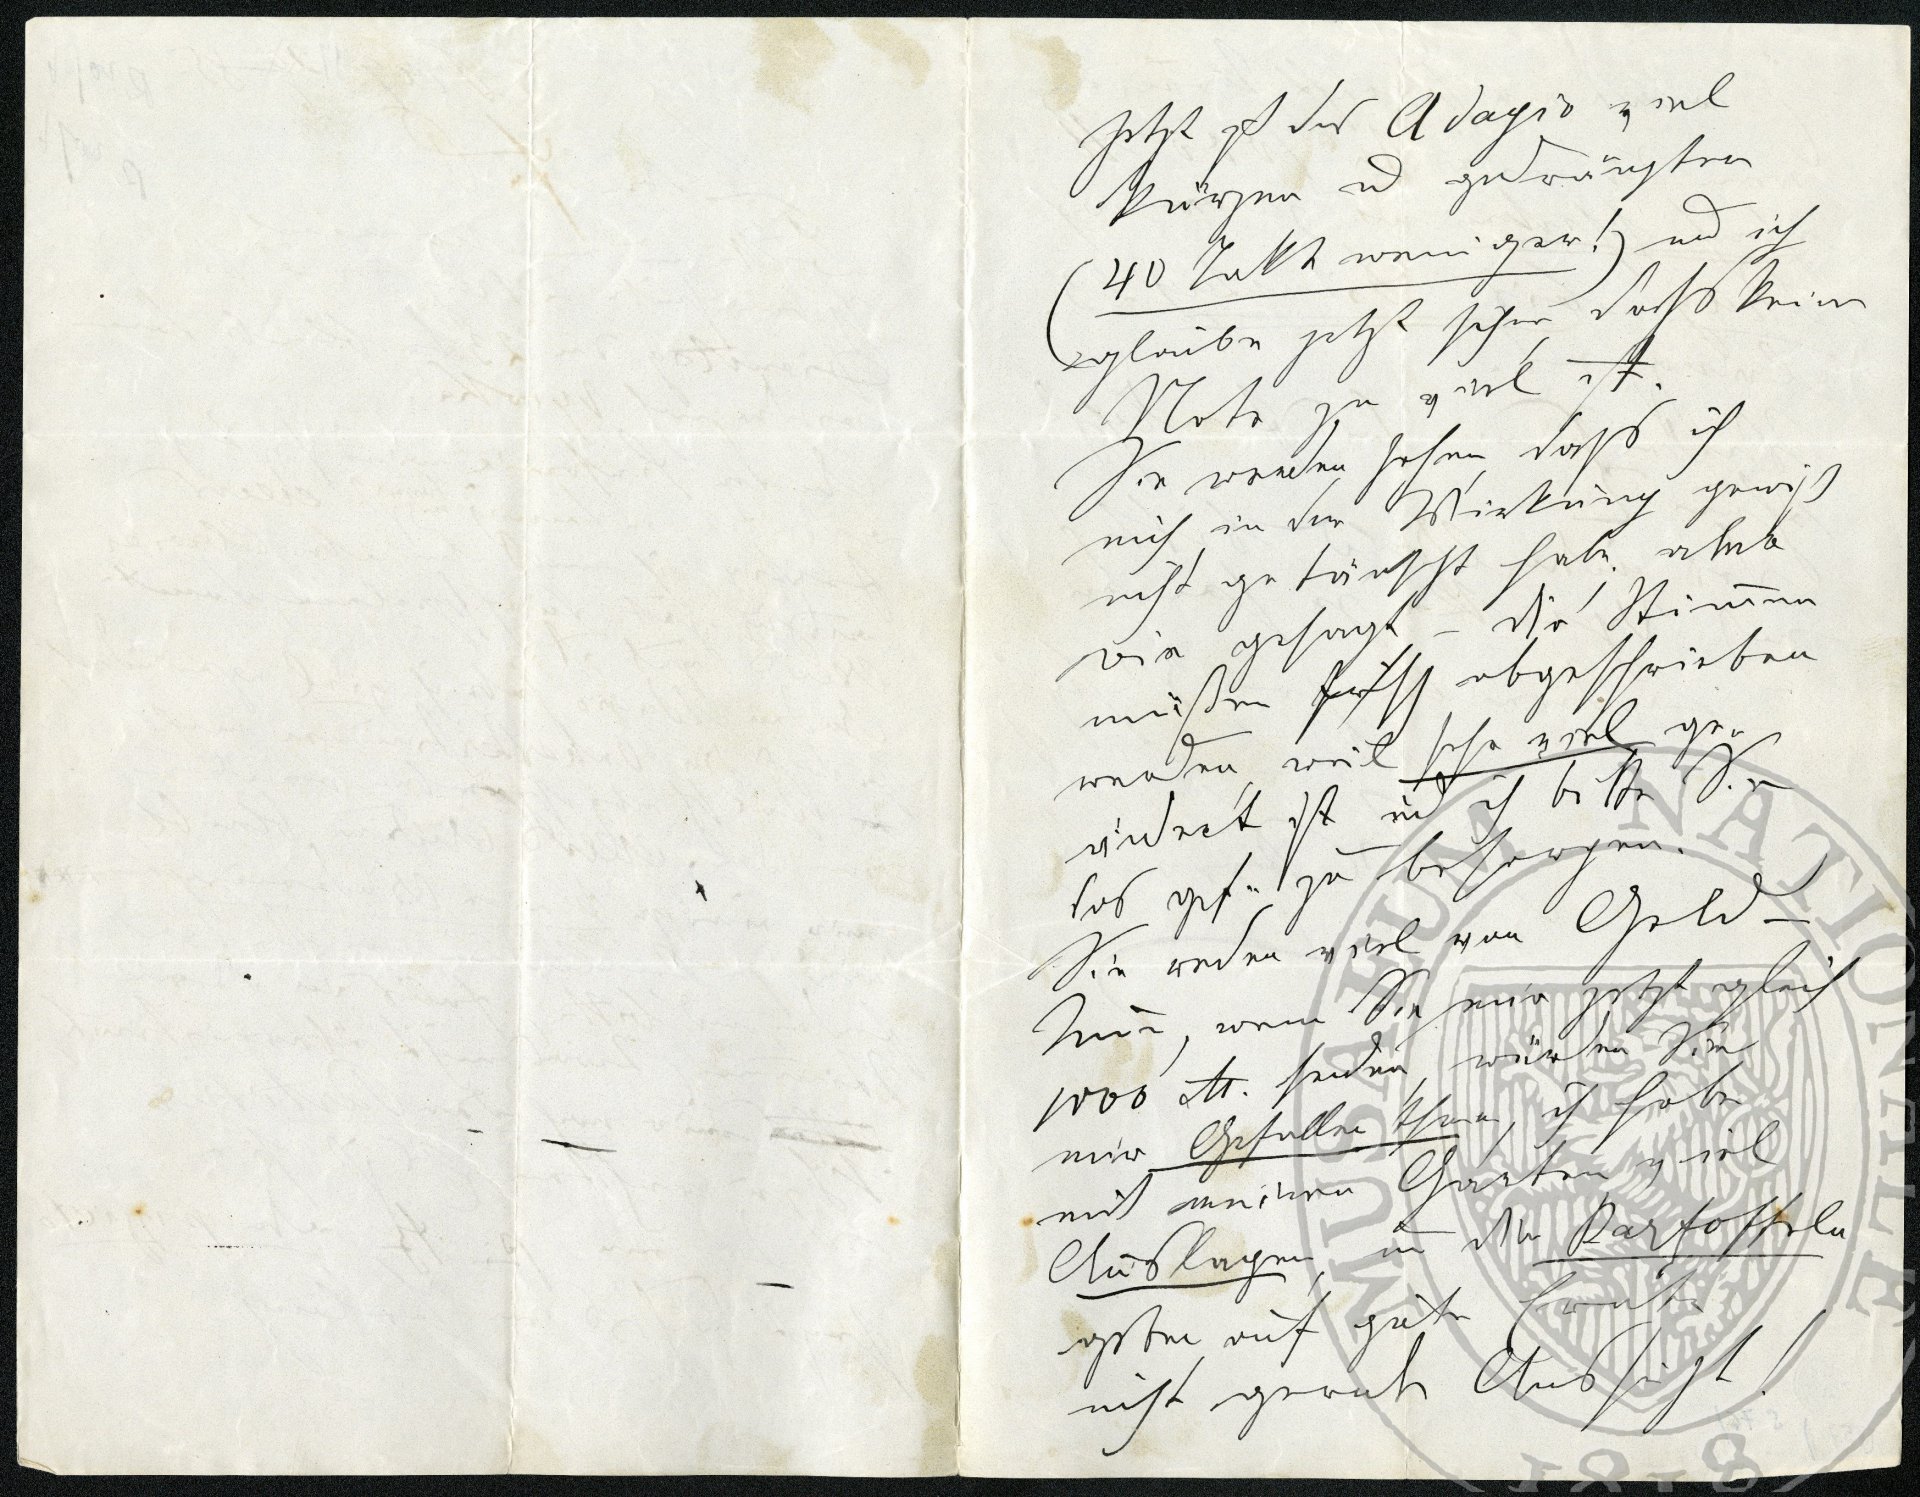 Jetzt ist das Adagio viel
kürzer und gedrängter
(40 Takte weniger!) und ich
glaube jetzt sicher, dass keine
Note zu viel ist.
Sie werden sehen, dass ich
mich in der Wirkung gewiß
nicht getäuscht habe. aber
wie gesagt – die Stimmen
müßen abgeschrieben
werden, weil sehr viel ge-
ändert ist und ich bitte Sie
das gef. zu besorgen.
Sie reden viel von Geld –
Nun, wenn Sie mir jetzt gleich
1000 M. senden, würden Sie
mir Gefallen thun, ich habe
mit meinem Garten viel
Auslagen, und die Kartoffeln
geben auf gute Ernte
nicht gerade Aussicht!
MUSAEUM NATIONALE
1818